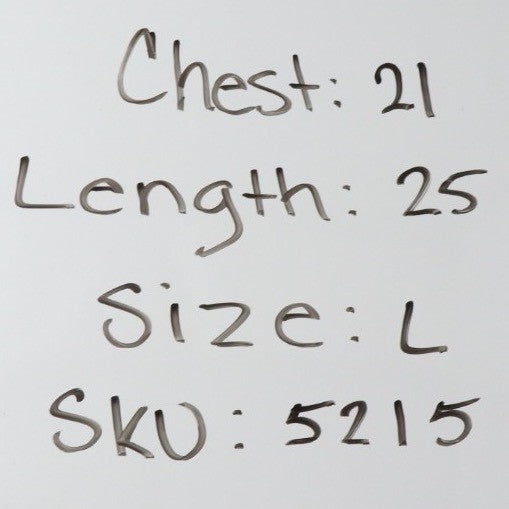 Chest: 21
Length: 25
Size: L
SKU: 5215